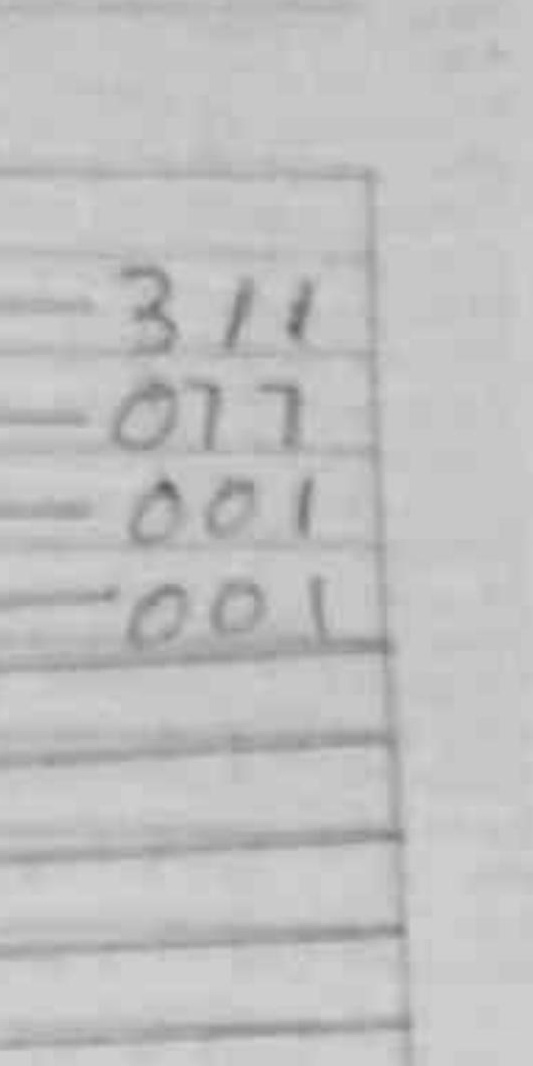 311
077
001
001